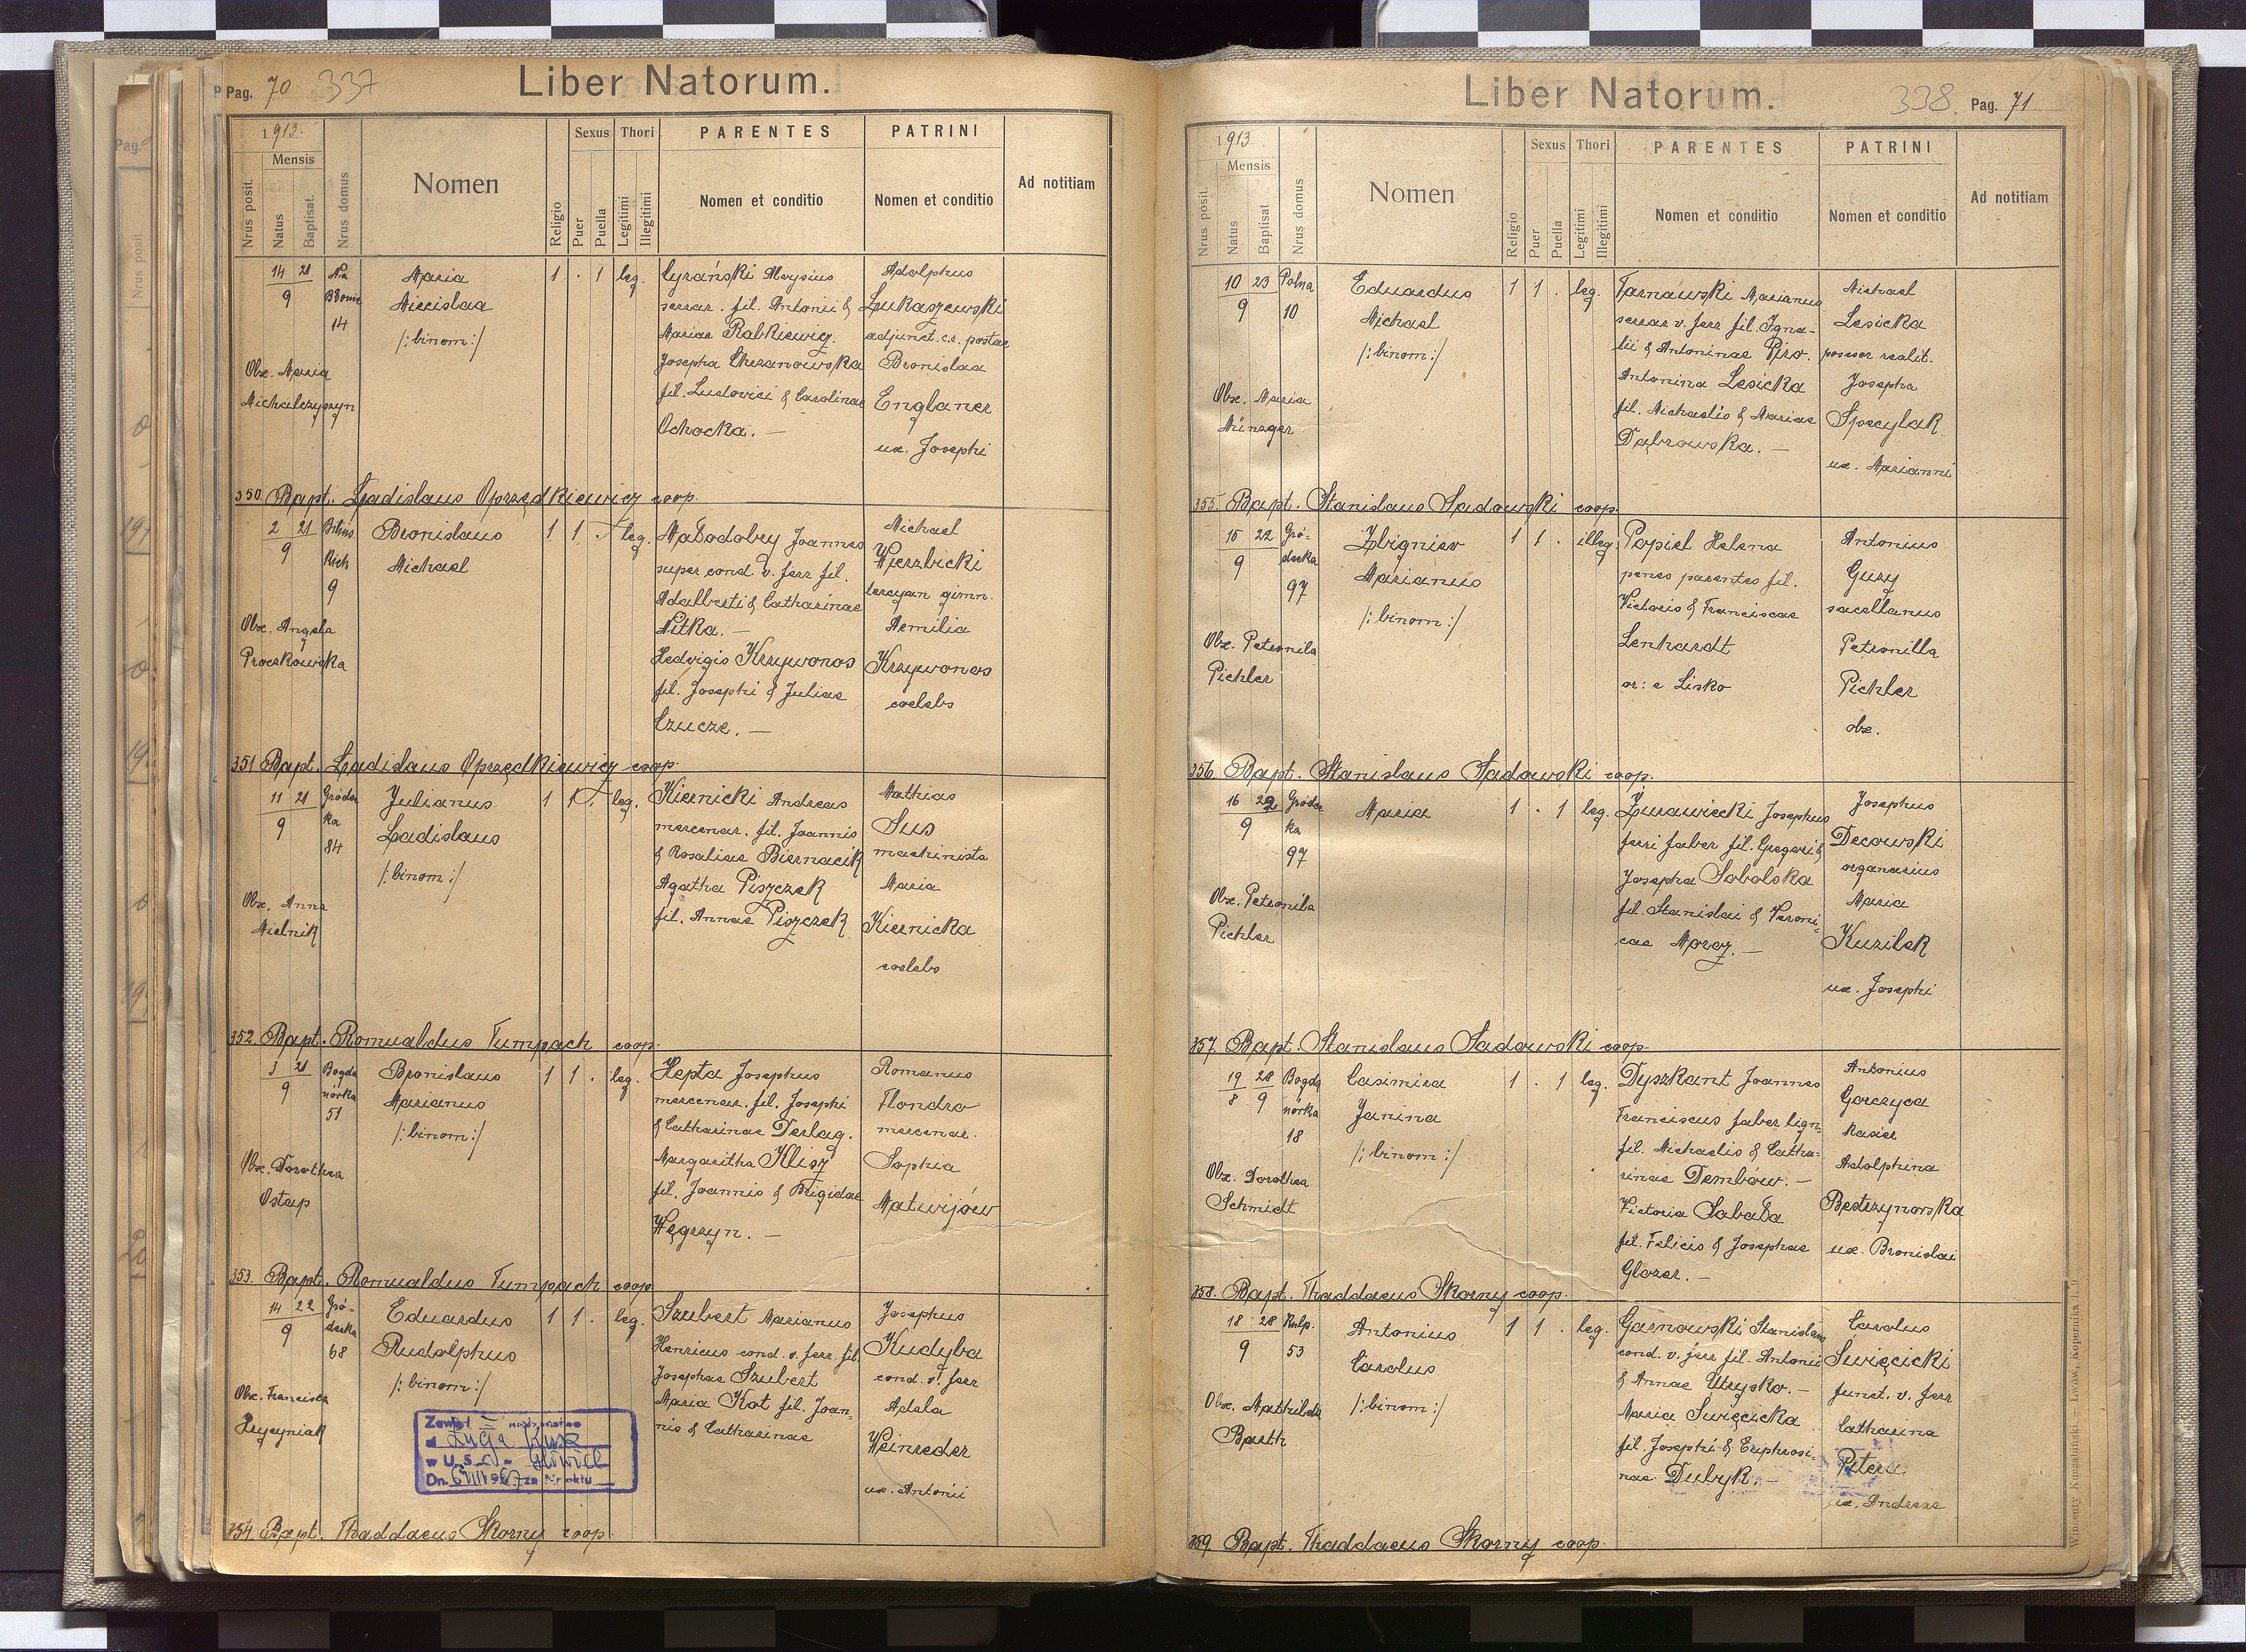 Pag. 70 337
Liber Natorum.
1913.
Mensis
Nrus posit.
Natus
Baptisat.
Nrus domus
Nomen
Religio
Sexus
Puer
Puella
Thori
Legitimi
Illegitimi
PARENTES
Nomen et conditio
PATRINI
Nomen et conditio
Ad notitiam
14 21
9
Na
Błonie
14
Maria
Miecislaa
/:binom:/
1 . 1 leg.
Cyrański Aloysius
serrar. fil. Antonii &
Mariae Rabkiewicz.
Josepha Chrzanowska
fil. Ludovici & Carolinae
Ochocka. —
Adolphus
Łukaszewski
adjunct. c.r. postae
Bronislaa
Englaner
ux. Josephi
Obx. Maria
Michalczyszyn
350. Bapt. Ladislaus Oprzędkiewicz coop.
2 21
9
9
Bronislaus
Michael
1 1 . leg.
Małodobry Joannes
super cond. v. ferr fil.
Adalberti & Catharinae
Nitka. —
Hedvigis Krzywonos
fil. Josephi & Juliae
Czucze. —
Michael
Wierzbicki
tercyan gimn.
Aemilia
Krzywonos
coelebs
Obx. Angela
Proczkowska
351 Bapt. Ladislaus Oprzędkiewicz coop.
11 21
9
Gródec
ka
84
Julianus
Ladislaus
/:binom:/
1 1 . leg.
Kiernicki Andreas
mercenar. fil. Joannis
& Rosaliae Biernacik
Agatha Piszczek
fil. Annae Piszczek
Mathias
Sus
machinista
Maria
Kiernicka
coelebs
Obx. Anna
Mielnik
352. Bapt. Romualdus Tumpach coop.
3 21
9
Bogda
nówka
51
Bronislaus
Marianus
/:binom:/
1 1 . leg.
Hepta Josephus
mercenar. fil. Josephi
& Catharinae Derlag.
Margaritha Klisz
fil. Joannis & Brigidae
Węgrzyn. —
Romanus
Flondro
mercenar.
Sophia
Matwijów
Obx. Dorothea
Ostap
353. Bapt. Romualdus Tumpach coop.
14 22
9
Gró-
decka
68
Eduardus
Rudolphus
/:binom:/
1 1 . leg.
Szubert Marianus
Henricus cond. v. ferr. fil.
Josephae Szubert
Maria Kot fil. Joan-
nis & Catharinae
Josephus
Kudyba
cond. v. ferr
Adela
Weinreder
ux. Antonii
Obx. Francisca
Hrycyniak
w U.S.C.
354. Bapt. Thaddaeus Skorny coop.
Liber Natorum.
338. Pag. 71
1913
Mensis
Nrus posit.
Natus
Baptisat.
Nrus domus
Nomen
Religio
Sexus
Puer
Puella
Thori
Legitimi
Illegitimi
PARENTES
Nomen et conditio
PATRINI
Nomen et conditio
Ad notitiam
10 23
9
Polna
10
Eduardus
Michael
/:binom:/
1 1 . leg.
Tarnawski Marianus
serrar v. ferr fil. Igna-
tii & Antoninae Piro.
Antonina Lesicka
fil. Michaelis & Mariae
Dąbrowska. —
Michael
Lesicka
possor realit.
Josepha
Specylak
ux. Marianni
Obx. Maria
Münzger
355. Bapt. Stanislaus Sadowski coop.
15 22
9
Gró-
decka
97
Zbigniew
Marianus
/:binom:/
1 1 . illeg.
Popiel Helena
penes parentes fil.
Victoris & Franciscae
Lenhardt
or: e Lisko
Antonius
Guzy
sacellanus
Petronilla
Pichler
obx.
Obx. Petronila
Pichler
356. Bapt. Stanislaus Sadowski coop.
16 22
9
Gródec
ka
97
Maria
1 . 1 leg.
Żurawiecki Josephus
ferri faber fil. Gregorii &
Josepha Sobolska
fil. Stanislai & Veroni-
cae Moroz. —
Josephus
Decowski
organarius
Maria
Kuzilek
ux. Josephi
Obx. Petronila
Pichler
357. Bapt. Stanislaus Sadowski coop.
19 28
8 9
Bogda
nówka
18
Casimira
Janina
/:binom:/
1 . 1 leg.
Dyszkant Joannes
Franciscus faber lign.
fil. Michaelis & Catha-
rinae Dembów. —
Victoria Sabała
fil. Felicis & Josephae
Glozer. —
Antonius
Gorczyca
kasier
Adolphina
Bedrzynowska
ux. Bronislai
Obx. Dorothea
Schmidt
358. Bapt. Thaddaeus Skorny coop.
18 28
9
Kulp.
53
Antonius
Carolus
/:binom:/
1 1 . leg.
Garnowski Stanislaus
cond. v. ferr fil. Antonii
& Annae Utrysko. —
Maria Święcicka
fil. Josephi & Euphrosi-
nae Dubyk. —
Carolus
Święcicki
funct. v. ferr
Catharina
Petera
ux. Andreae
Obx. Mathilda
Barth
359. Bapt. Thaddaeus Skorny coop.
Wincenty Kuczabiński — Lwów, Kopernika l. 9